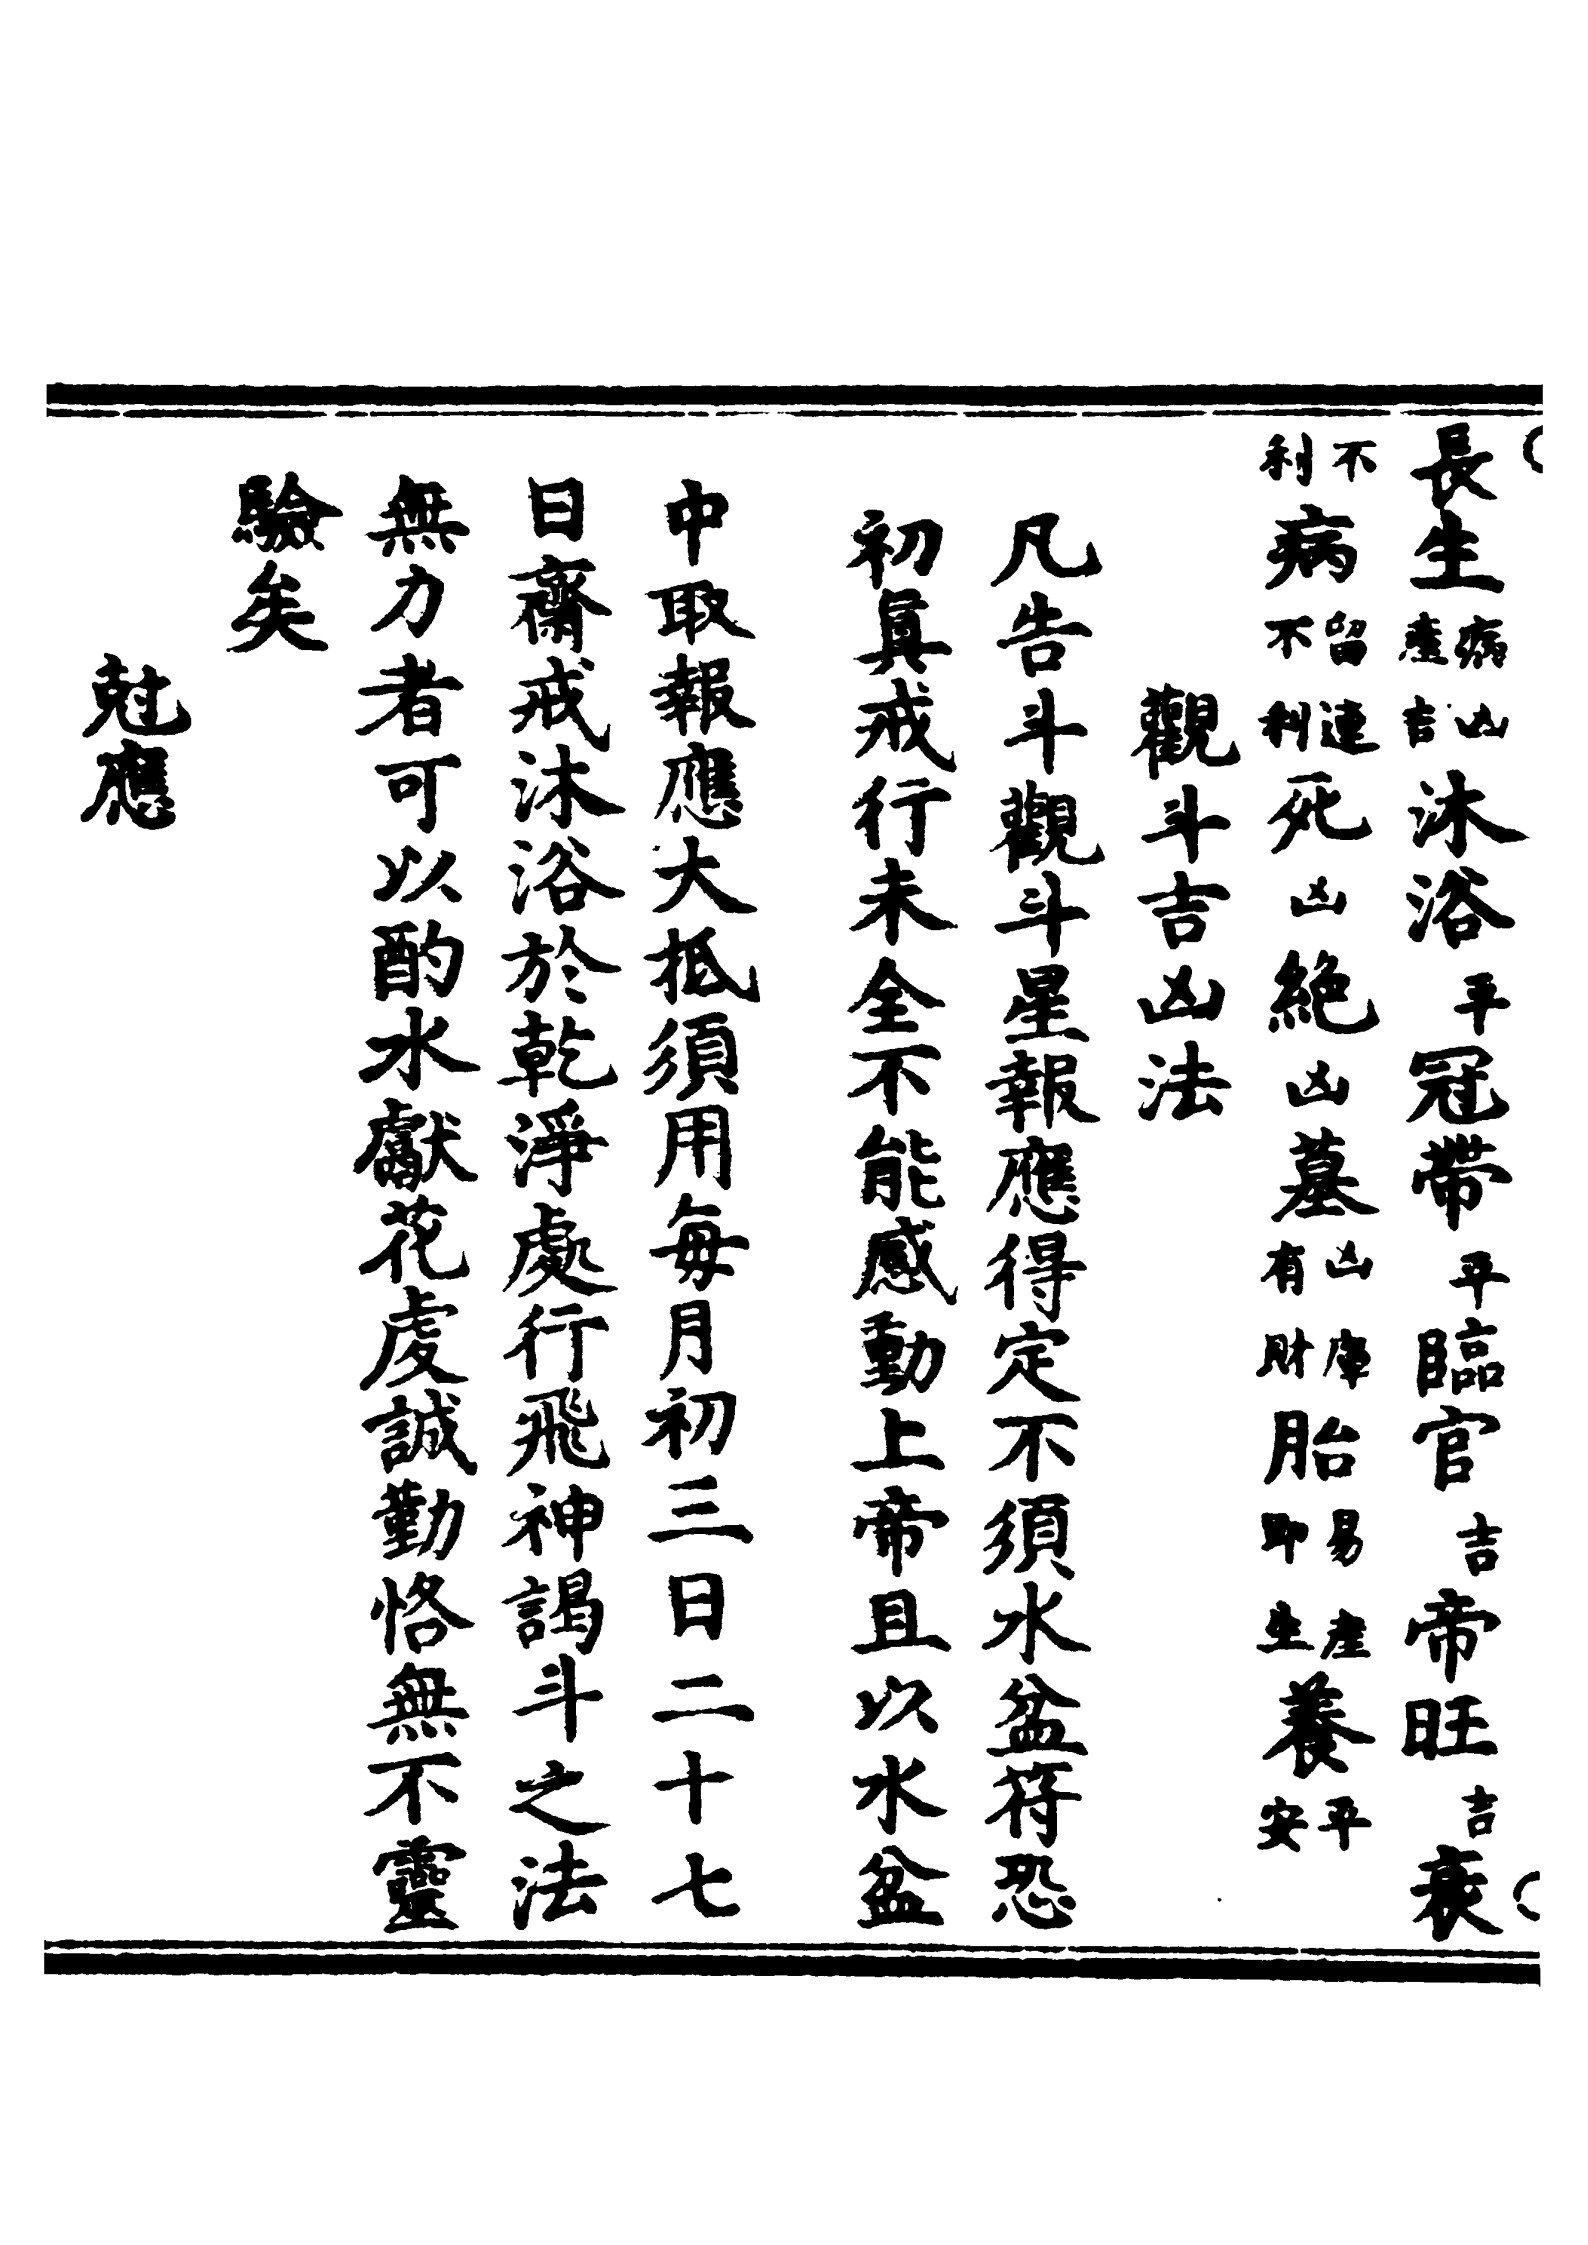 長生病凶產吉沐浴平冠帶平臨官吉帝旺吉衰
不利病留連不利死凶絕凶墓凶庫有財胎易產即生養平安
觀斗吉凶法
凡告斗觀斗星報應得定不須水盆符恐
初眞戒行未全不能感動上帝且以水盆
中取報應大抵須用每月初三日二十七
日齋戒沐浴於乾淨處行飛神謁斗之法
無力者可以酌水獻花虔誠勤恪無不靈
驗矣
尅應